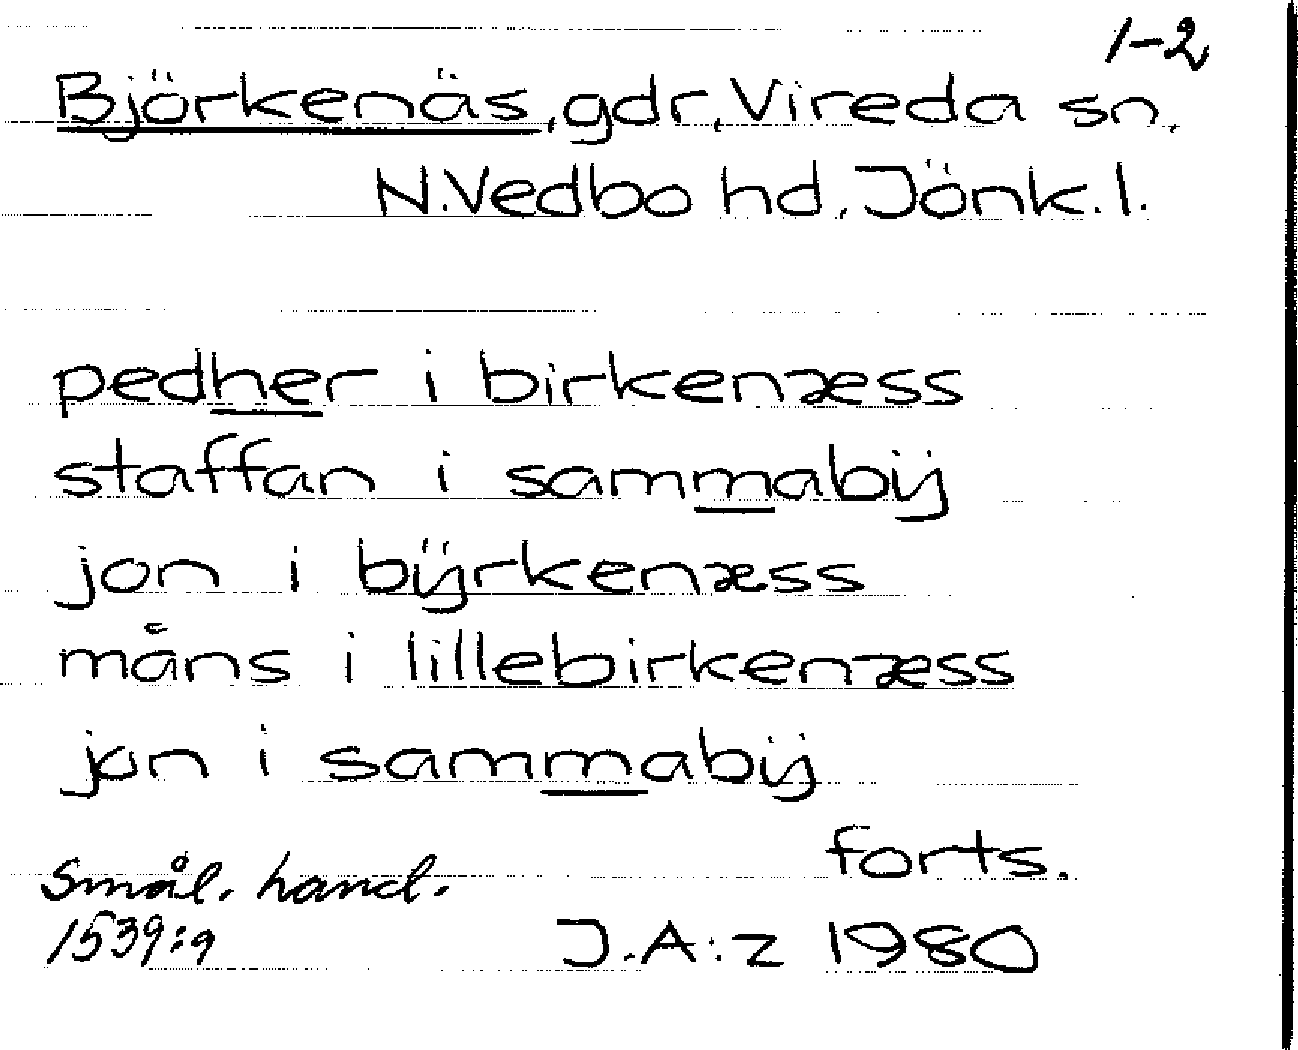 1-2
Björkenäs, gdr, Vireda sn,
N.Vedbo hd, Jönk.l.
pedher i birkenæss
staffan i sammabij
jon i bÿrkenæss
måns i lillebirkenæss
jon i sammabij
forts.
Smål. hand.
1539:9
J.A:z 1980